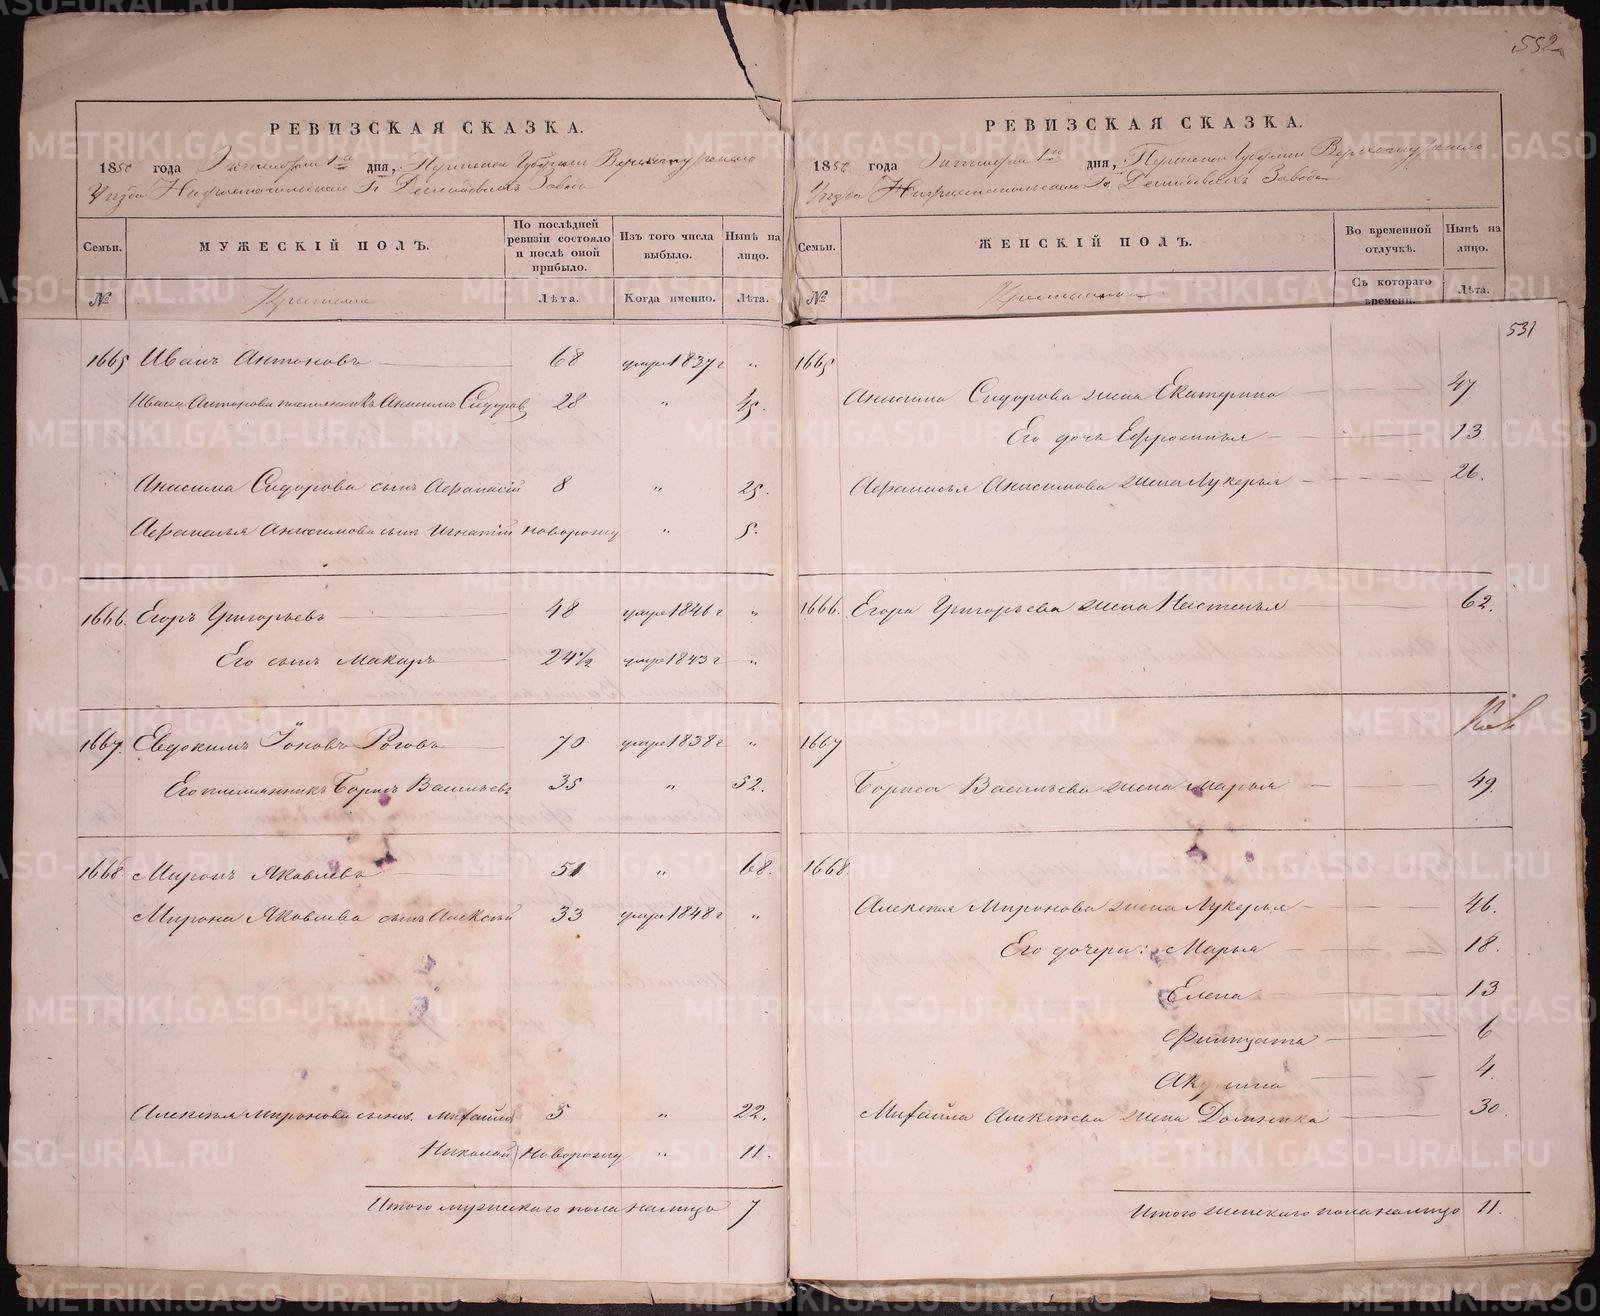 552
РЕВИЗСКАЯ СКАЗКА.
1850 года Октября 1го дня, Пермской Губернии Верхотурскаго
Уѣзда Нижнетагильскаго Гг. Демидовыхъ Завода
Семьи.
МУЖЕСКІЙ ПОЛЪ.
По послѣдней ревизіи состояло и послѣ оной прибыло.
Изъ того числа выбыло.
Нынѣ на лицо.
№
Крестьяне
Лѣта.
Когда именно.
Лѣта.
1665 Иванъ Антоновъ 68 умре 1837 г "
Ивана Антонова племянникъ Анисимъ Сидоров 28 " 45.
Анисима Сидорова сынъ Афанасій 8 " 25.
Афанасья Анисимова сынъ Игнатій новорожд " 5.
1666. Егоръ Григорьевъ 48 умре 1846 г "
Его сынъ Макаръ 24 1/2 умре 1843 г "
1667. Евдокимъ Іоновъ Роговъ 70 умре 1838 г "
Его племянникъ Борисъ Васильевъ 35 " 52.
1668. Миронъ Яковлевъ 51 " 68.
Мирона Яковлева сынъ Алексѣй 33 умре 1848 г "
Алексѣя Миронова сынов. Михайло 5 " 22.
Николай Новорожд " 11.
Итого мужескаго пола налицо 7
РЕВИЗСКАЯ СКАЗКА.
1850 года Октября 1го дня, Пермской Губернии Верхотурскаго
Уѣзда Нижнетагильскаго Гг. Демидовыхъ Завода
Семьи.
ЖЕНСКІЙ ПОЛЪ.
Во временной отлучкѣ.
Нынѣ на лицо.
№
Крестьянки
Съ котораго времени.
Лѣта.
531
1665
Анисима Сидорова жена Екатерина 47
Его дочь Ефросинья 13
Афанасья Анисимова жена Лукерья 26.
1666. Егора Григорьева жена Настасья 62.
1667
Бориса Васильева жена Марья 49
1668
Алексѣя Миронова жена Лукерья 46.
Его дочери: Марья 18.
Елена 13
Фитцата 6
Акулина 4.
Михайла Алексѣева жена Домника 30.
Итого женскаго пола налицо 11.
METRIKI.GASO-URAL.RU